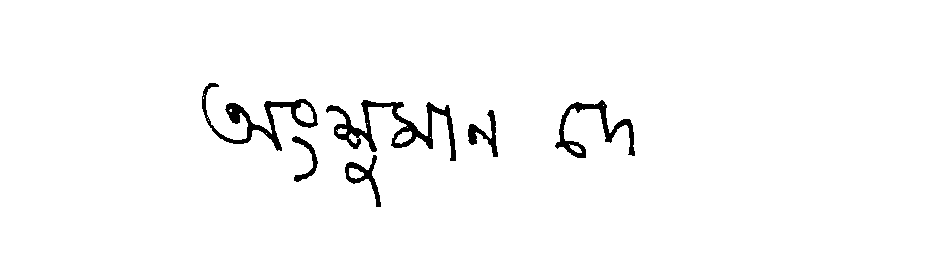 অংশুমান দে